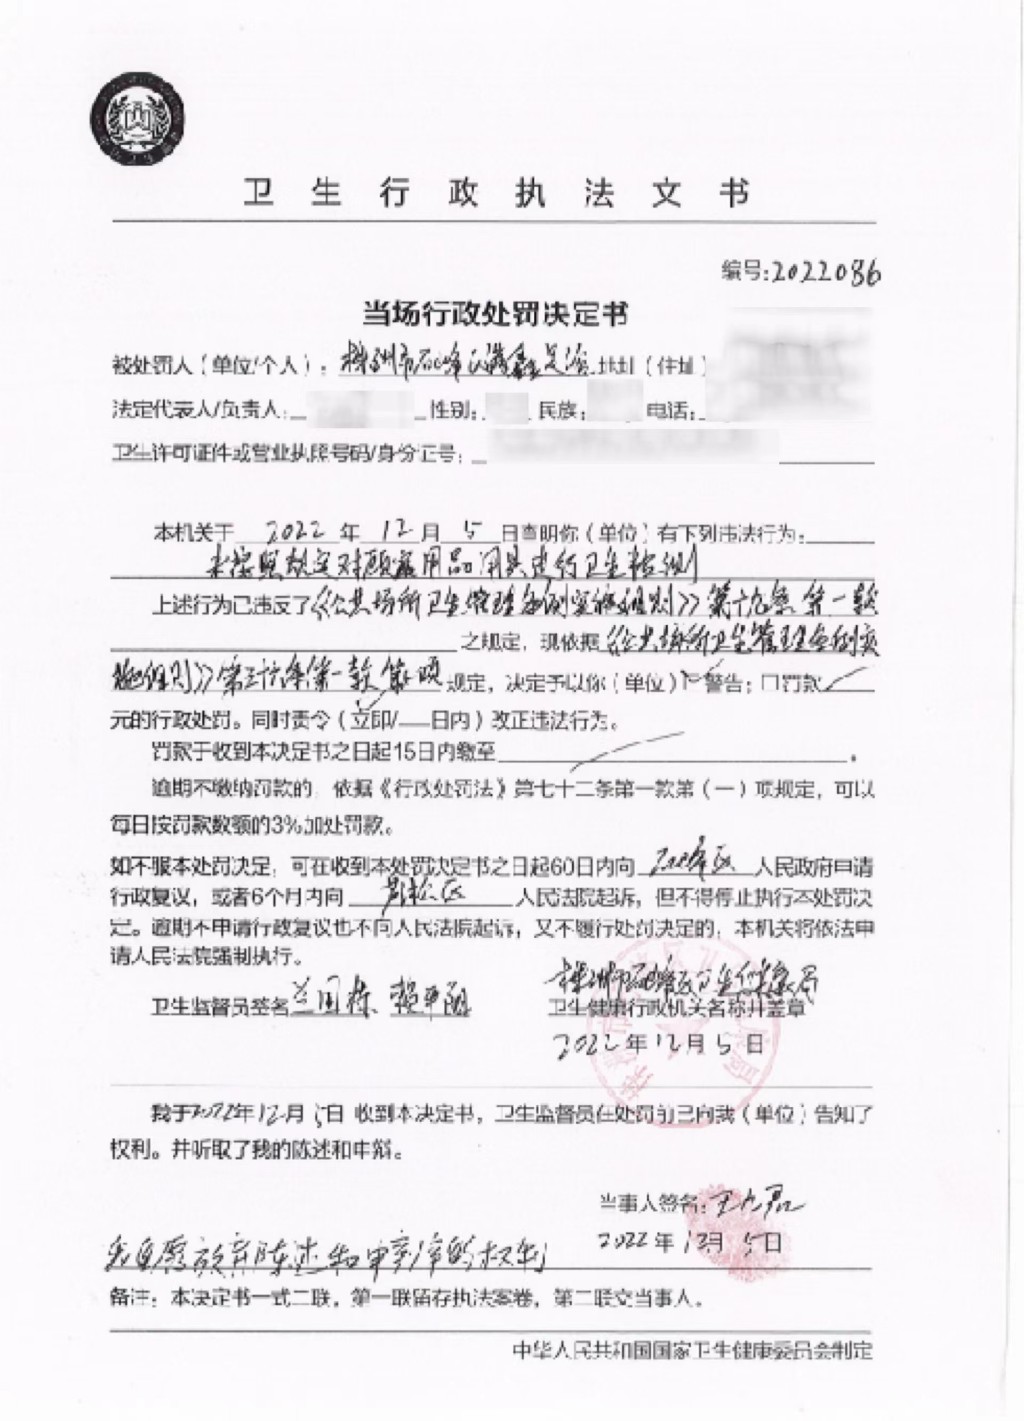 卫生行政执法文书
编号:2022086
当场行政处罚决定书
被处罚人(单位/个人):株洲市石峰区满鑫足浴 地址(住址)
法定代表人/负责人: 性别: 民族: 电话:
卫生许可证件或营业执照号码/身份证号:
本机关于 2022 年 12 月 5 日查明你(单位)有下列违法行为:
未按照规定对顾客用品用具进行卫生检测
上述行为已违反了《公共场所卫生管理条例实施细则》第十九条第一款
之规定,现依据《公共场所卫生管理条例实
施细则》第三十六条第一款第 项 规定,决定予以你(单位)警告;口罚款
元的行政处罚。同时责令(立即/ 日内)改正违法行为。
罚款于收到本决定书之日起15日内缴至 。
逾期不缴纳罚款的,依据《行政处罚法》第七十二条第一款第(一)项规定,可以
每日按罚款数额的3%加处罚款。
如不服本处罚决定,可在收到本处罚决定书之日起60日内向 石峰区 人民政府申请
行政复议,或者6个月内向 芦淞区 人民法院起诉,但不得停止执行本处罚决
定。逾期不申请行政复议也不向人民法院起诉,又不履行处罚决定的,本机关将依法申
请人民法院强制执行。
株洲市石峰区卫生健康局
卫生监督员签名 兰国栋、赖 卫生健康行政机关名称并盖章
2022年12月5日
我于2022年12月5日 收到本决定书,卫生监督员在处罚前已向我(单位)告知了
权利。并听取了我的陈述和申辩。
当事人签名:王
2022年12月5日
我自愿放弃陈述和申辩的权利
备注:本决定书一式二联,第一联留存执法案卷,第二联交当事人。
中华人民共和国国家卫生健康委员会制定